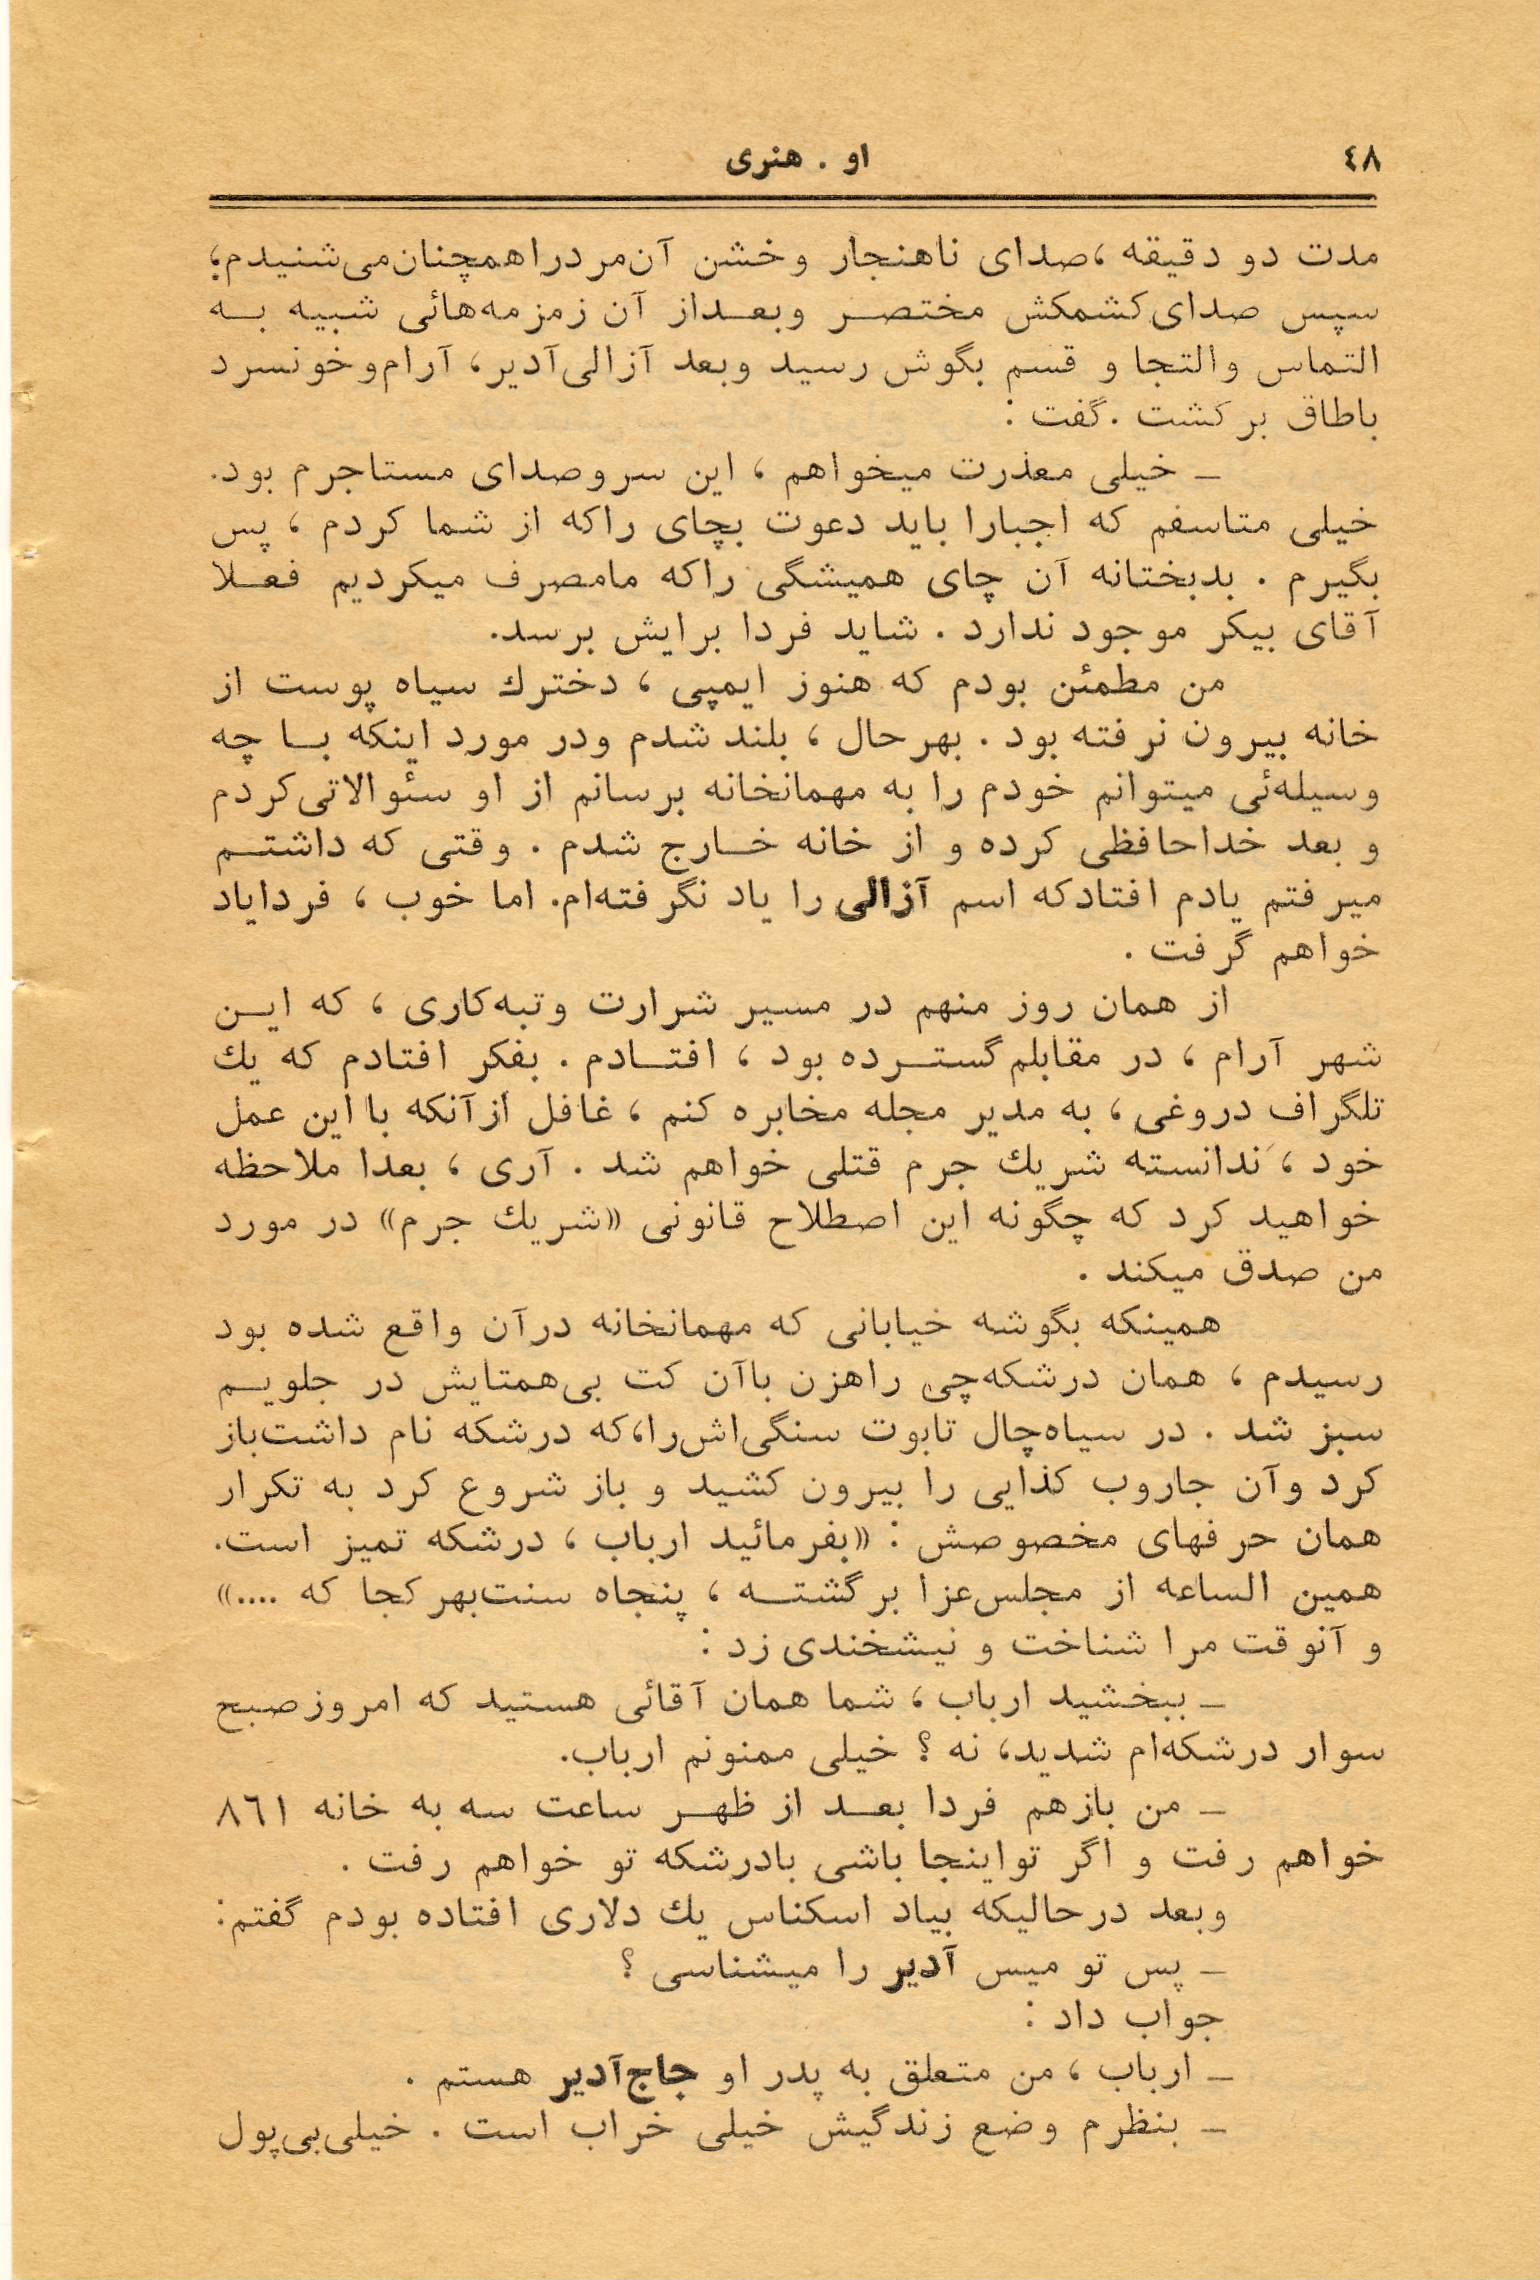 ٤٨
او . هنری
مدت دو دقیقه ، صدای ناهنجار و خشن آن مرد را همچنان می‌شنیدم ؛
سپس صدای کشمکش مختصر و بعداز آن زمزمه‌هائی شبیه به
التماس والتجا و قسم بگوش رسید وبعد آزالی‌آدیر، آرام‌و خونسرد
باطاق برگشت . گفت :
ـ خیلی معذرت میخواهم ، این سروصدای مستاجرم بود.
خیلی متاسفم که اجبارا باید دعوت بچای راکه از شما کردم ، پس
بگیرم . بدبختانه آن چای همیشگی راکه مامصرف میکردیم فعلا
آقای بیکر موجود ندارد . شاید فردا برایش برسد.
من مطمئن بودم که هنوز ایمپی ، دخترك سیاه پوست از
خانه بیرون نرفته بود . بهرحال ، بلند شدم ودر مورد اینکه با چه
وسیله‌ئی میتوانم خودم را به مهمانخانه برسانم از او سئوالاتی‌کردم
و بعد خداحافظی کرده و از خانه خارج شدم . وقتی که داشتم
میرفتم یادم افتادکه اسم آزالی را یاد نگرفته‌ام. اما خوب ، فردایاد
خواهم گرفت .
از همان روز منهم در مسیر شرارت وتبه‌کاری ، که این
شهر آرام ، در مقابلم گسترده بود ، افتادم . بفکر افتادم که یك
تلگراف دروغی ، به مدیر مجله مخابره کنم ، غافل ازآنکه با این عمل
خود ، ندانسته شریك جرم قتلی خواهم شد . آری ، بعدا ملاحظه
خواهید کرد که چگونه این اصطلاح قانونی «شریك جرم» در مورد
من صدق میکند .
همینکه بگوشه خیابانی که مهمانخانه درآن واقع شده بود
رسیدم ، همان درشکه‌چی راهزن باآن کت بی‌همتایش در جلویم
سبز شد . در سیاه‌چال تابوت سنگی‌اش‌را،که درشکه نام داشت‌باز
کرد وآن جاروب کذایی را بیرون کشید و باز شروع کرد به تکرار
همان حرفهای مخصوصش : «بفرمائید ارباب ، درشکه تمیز است.
همین الساعه از مجلس‌عزا برگشته ، پنجاه سنت‌بهرکجا که ....»
و آنوقت مرا شناخت و نیشخندی زد :
ـ ببخشید ارباب ، شما همان آقائی هستید که امروز صبح
سوار درشکه‌ام شدید، نه ؟ خیلی ممنونم ارباب.
ـ من بازهم فردا بعد از ظهر ساعت سه به خانه ٨٦١
خواهم رفت و اگر تواینجا باشی بادرشکه تو خواهم رفت .
وبعد درحالیکه بیاد اسکناس یك دلاری افتاده بودم گفتم:
ـ پس تو میس آدیر را میشناسی ؟
جواب داد :
ـ ارباب ، من متعلق به پدر او جاج‌آدیر هستم .
ـ بنظرم وضع زندگیش خیلی خراب است . خیلی‌بی‌پول